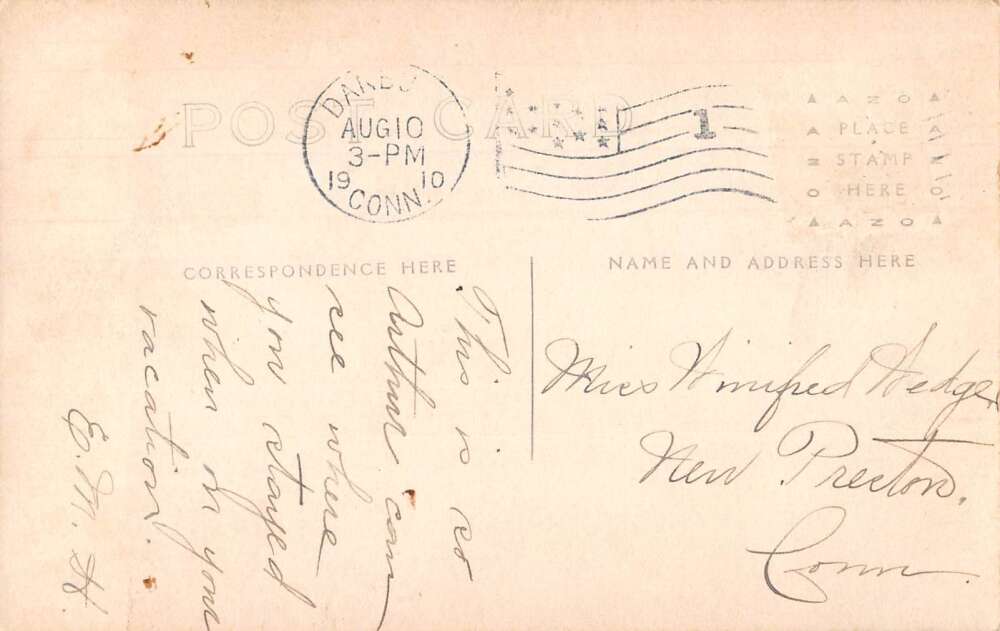 POST CARD
DANBU
AUG 10
3-PM
1910
CONN.
1
▲ AZO ▲
PLACE
STAMP
HERE
▲ AZO ▲
CORRESPONDENCE HERE
NAME AND ADDRESS HERE
This is so
Arthur can
see where
you stayed
when on your
vacation.
E. M. H.
Miss Winifred
New Preston,
Conn.